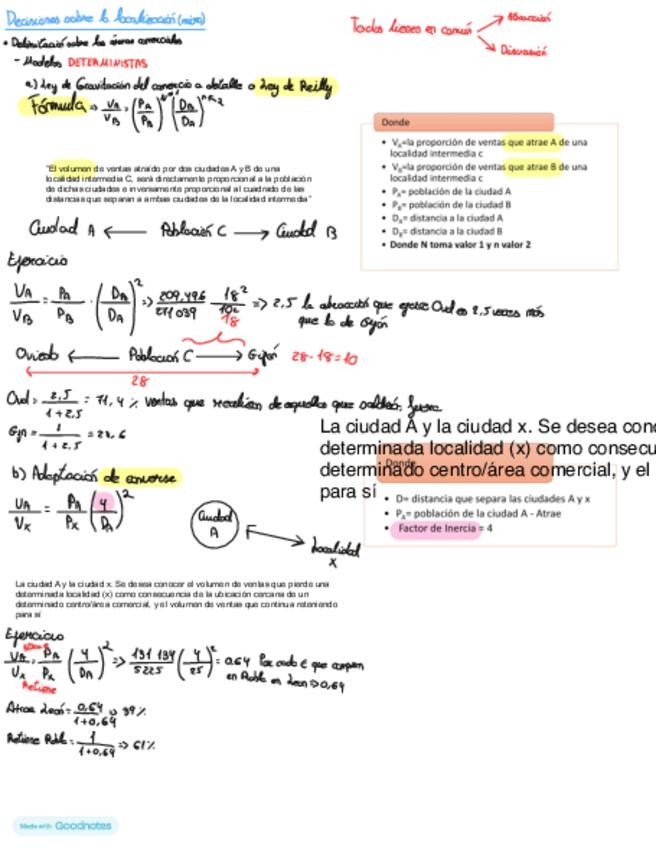 Decisiones sobre la localización (micro)
Todos tienen en común
Atracción
Disuasión
• Delimitación sobre las áreas comerciales
- Modelos DETERMINISTAS
a) Ley de Gravitación del comercio a detalle o Ley de Reilly
Fórmula => VA/VB = (PA/PB)^N=1 (DB/DA)^n=2
Donde
• VA=la proporción de ventas que atrae A de una
localidad intermedia c
• VB=la proporción de ventas que atrae B de una
localidad intermedia c
• PA= población de la ciudad A
• PB= población de la ciudad B
• DA= distancia a la ciudad A
• DB= distancia a la ciudad B
• Donde N toma valor 1 y n valor 2
"El volumen de ventas atraído por dos ciudades A y B de una
localidad intermedia C, será directamente proporcional a la población
de dichas ciudades e inversamente proporcional al cuadrado de las
distancias que separan a ambas ciudades de la localidad intermedia"
Ciudad A ← Población C → Ciudad B
Ejercicio
VA/VB = PA/PB · (DB/DA)² => 209.496/271039 18²/10² => 2,5 la atracción que ejerce Ovd es 2,5 veces más
que la de Gijón
18
Oviedo ← Población C → Gijón 28-18=10
28
Ovd = 2,5/1+2,5 = 71,4% ventas que realizan de aquellos que saldrán fuera
Gijn = 1/1+2,5 = 28,6
La ciudad A y la ciudad x. Se desea cono
determinada localidad (x) como consecu
determinado centro/área comercial, y el
para sí
b) Adaptación de converse
VA/VX = PA/PX (4/DA)²
Ciudad
A
Localidad
X
Donde
• D= distancia que separa las ciudades A y x
• PA= población de la ciudad A - Atrae
• Factor de Inercia = 4
La ciudad A y la ciudad x. Se desea conocer el volumen de ventas que pierde una
determinada localidad (x) como consecuencia de la ubicación cercana de un
determinado centro/área comercial, y el volumen de ventas que continua reteniendo
para sí
Ejercicio
VA/VX = PA/PX (4/DA)² => 131 134/5225 (4/25)² = 0.64 Por cada € que compren
en Robla en León => 0,64
Retiene
Atrae León = 0,64/1+0,64 => 39%
Retiene Robla = 1/1+0,64 => 61%
Made with Goodnotes